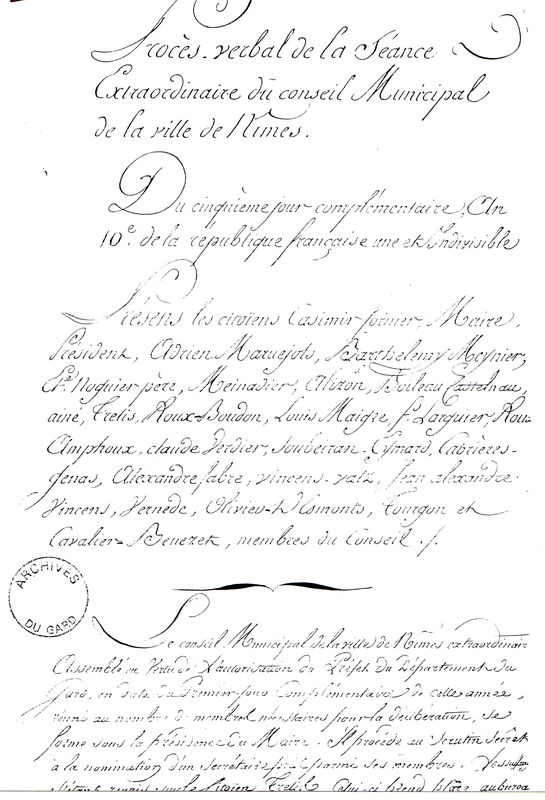 Procès-verbal de la Séance
Extraordinaire du conseil Municipal
de la ville de Nimes.
Du cinquième jour complémentaire, An
10e. de la république française une et Indivisible
Présens les citoiens Casimir fornier, Maire,
Président, Adrien Maruejols, Barthelemy Meynier,
Noguier père, Meinadier, Alizon, Boileau Castelnau,
ainé, Trelis, Roux-Boudon, Louis Maigre, f. Larguier, Roux
Amphoux, claude Verdier, Soubeiran, Eymard, Cabrières-
Genas, Alexandre fabre, vincens-valz, Jean alexandre
Vincens, Vernède, Olivier-D'Esmonts, Tourgon et
Cavalier-Benezet, membres du Conseil ./.
ARCHIVES
DU GARD
Le conseil Municipal de la ville de Nimes extraordinair
Assemblé en Vertu de L'autorisation du Préfet du Département du
Gard, en date du Premier jour Complémentaire de cette année,
réuni au nombre de membres nécessaires pour la délibération, se
forme sous la présidence du Maire. Il procède au scrutin secret
à la nomination d'un secrétaire pris parmi ses membres. Les suffra
s'étant réunis sur le Citoien Trelis Celui-ci prend place au burea